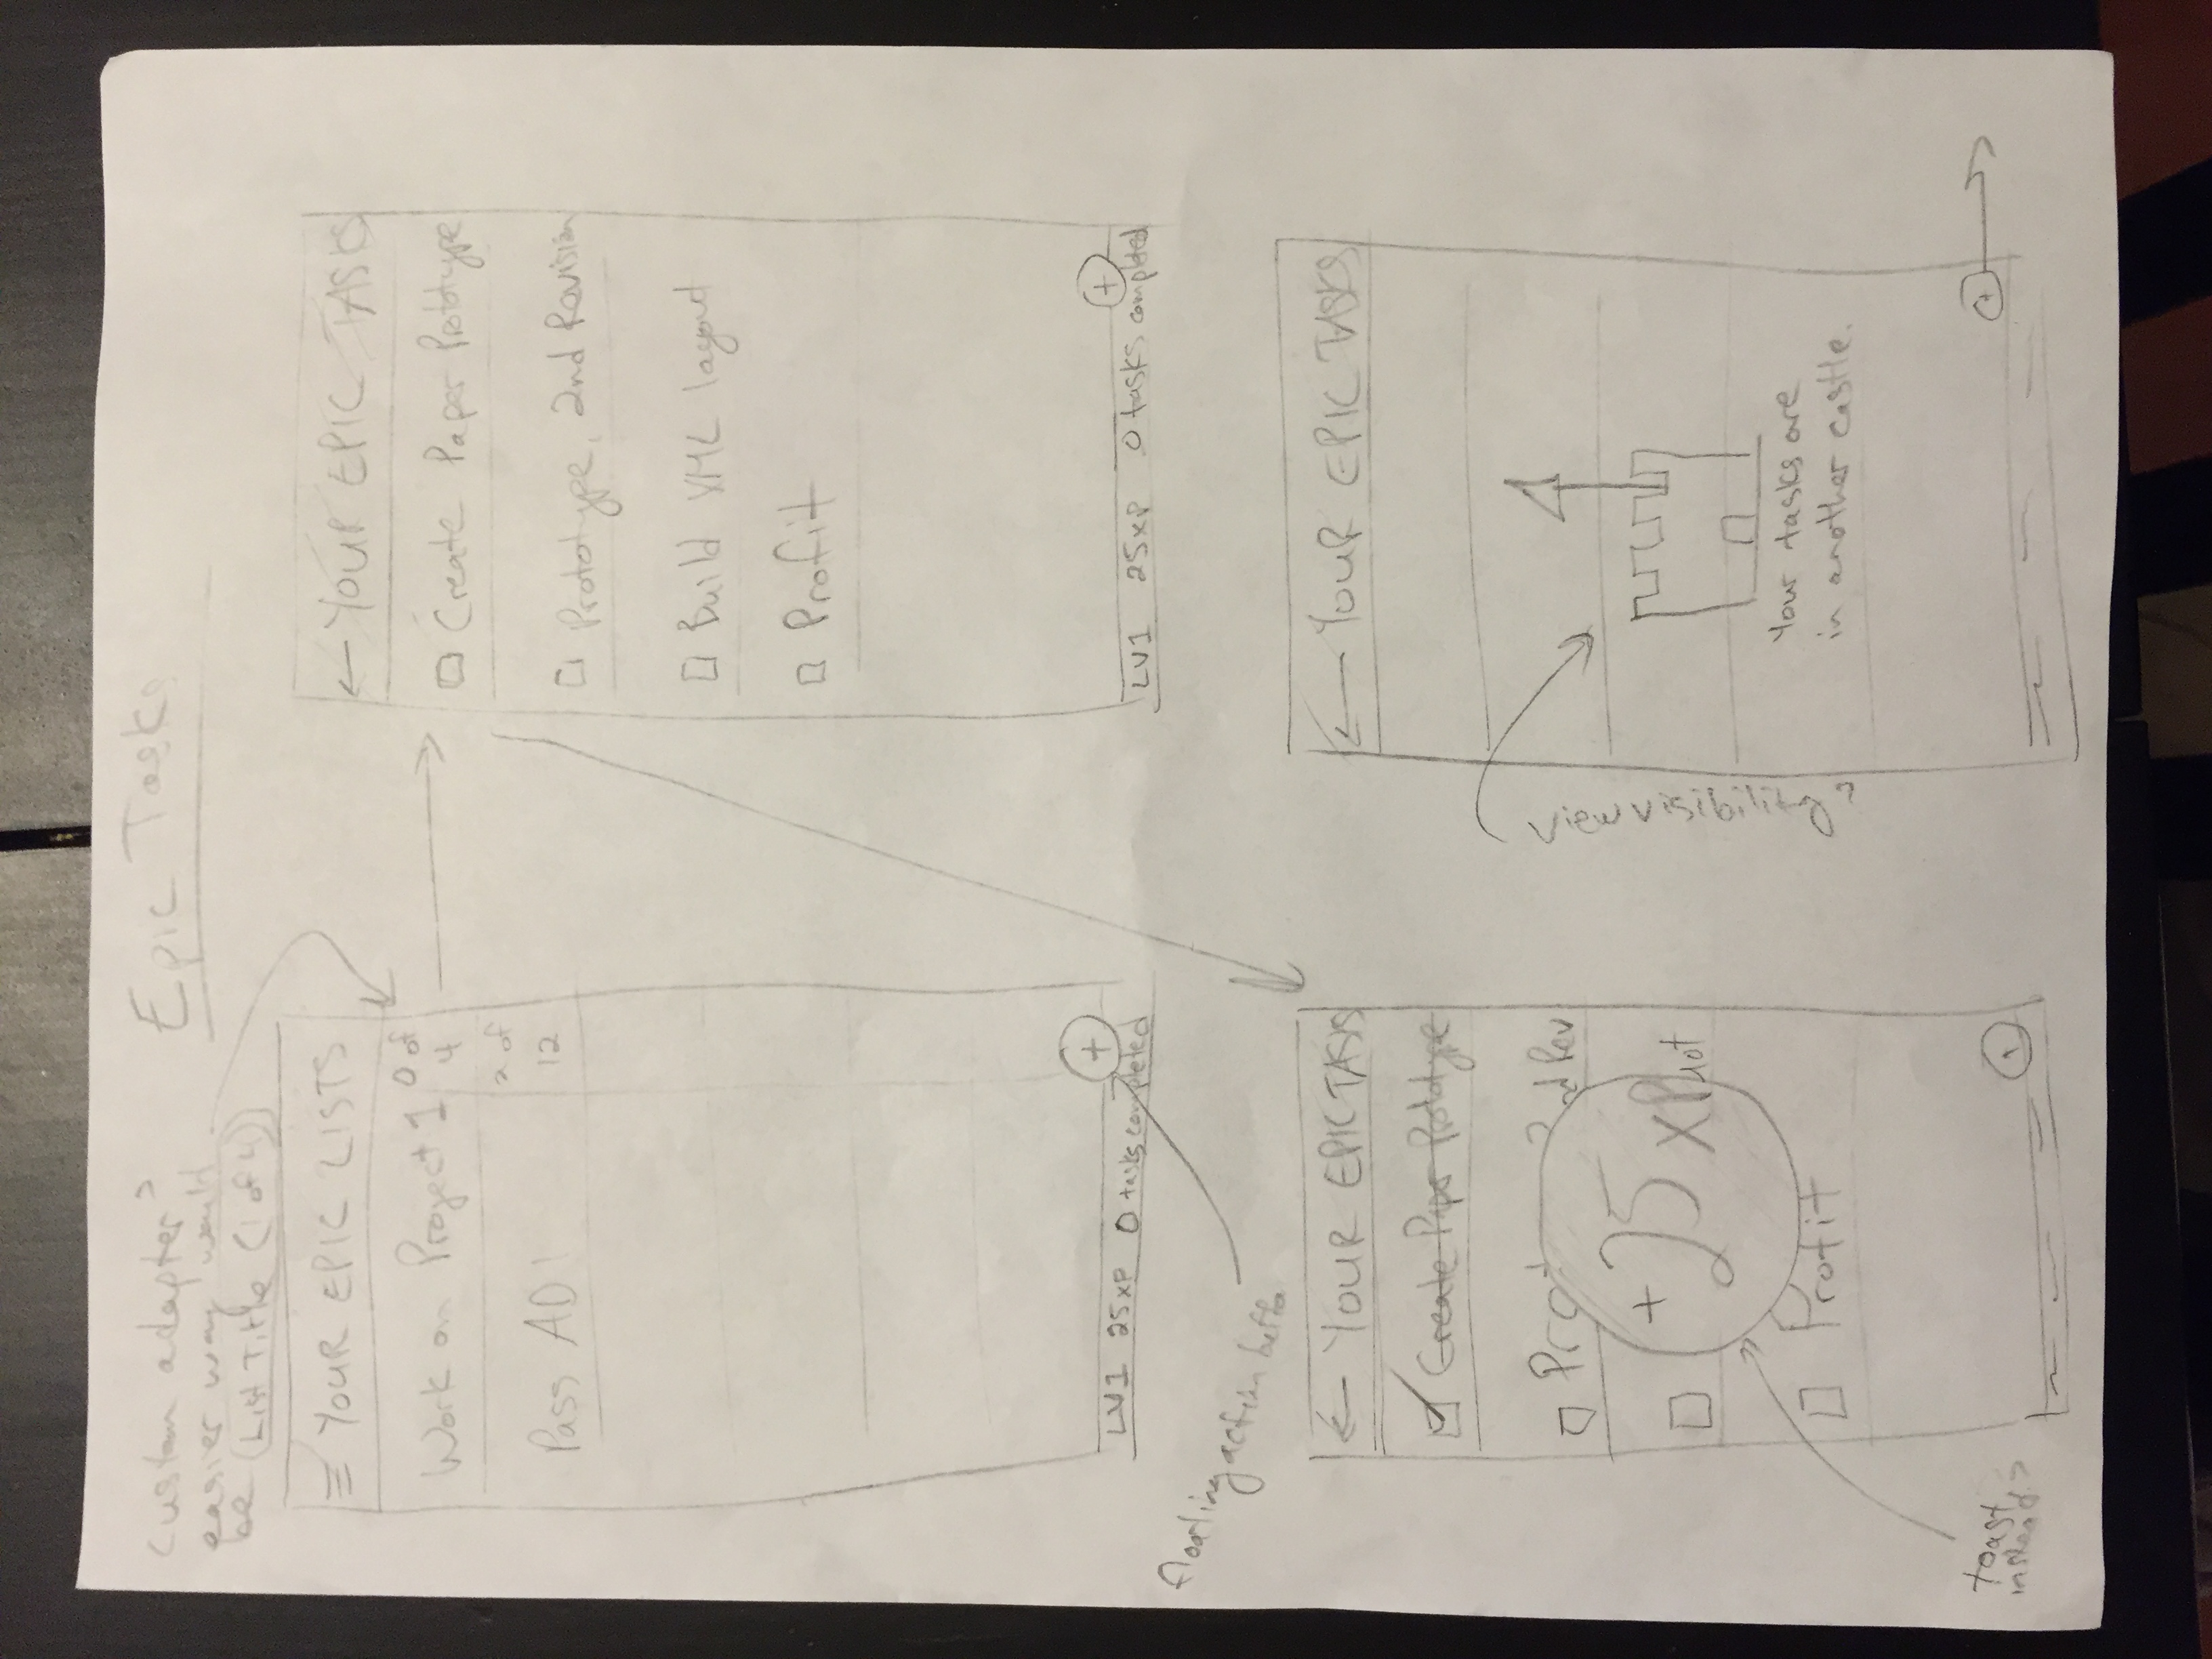 Epic Tasks
Custom adapter?
easier way would
be (List Title (1 of 4))
YOUR EPIC LISTS
Work on Project 1
0 of
4
Pass ADI
2 of
12
+
LV1 25xp 0 tasks completed
floating action button
← YOUR EPIC TASKS
Create Paper Prototype
Prototype, 2nd Revision
Build XML layout
Profit
+
LV1 25xp 0 tasks completed
← YOUR EPIC TASKS
Create Paper Prototype
Prot 2nd Rev
+25 XP
out
Profit
+
toast
instead?
← YOUR EPIC TASKS
View visibility?
Your tasks are
in another castle.
+